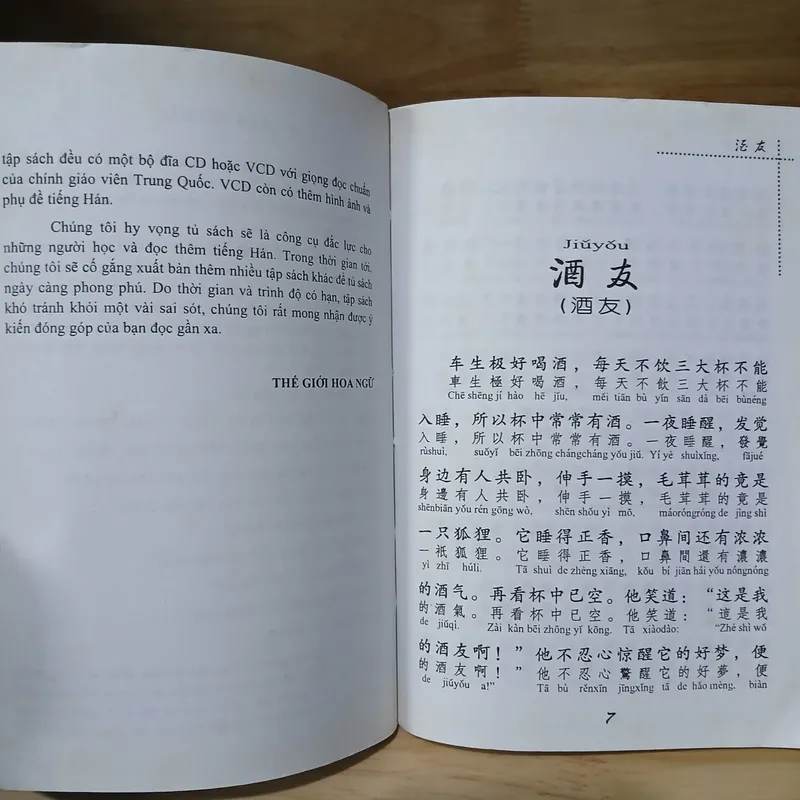 tập sách đều có một bộ đĩa CD hoặc VCD với giọng đọc chuẩn
của chính giáo viên Trung Quốc. VCD còn có thêm hình ảnh và
phụ đề tiếng Hán.
Chúng tôi hy vọng tủ sách sẽ là công cụ đắc lực cho
những người học và đọc thêm tiếng Hán. Trong thời gian tới,
chúng tôi sẽ cố gắng xuất bản thêm nhiều tập sách khác để tủ sách
ngày càng phong phú. Do thời gian và trình độ có hạn, tập sách
khó tránh khỏi một vài sai sót, chúng tôi rất mong nhận được ý
kiến đóng góp của bạn đọc gần xa.
THẾ GIỚI HOA NGỮ
酒友
Jiǔyǒu
酒友
(酒友)
车生极好喝酒，每天不饮三大杯不能
車生極好喝酒，每天不飲三大杯不能
Chē shēng jí hào hē jǐu, měi tiān bù yǐn sān dà bēi bùnéng
入睡，所以杯中常常有酒。一夜睡醒，发觉
入睡，所以杯中常常有酒。一夜睡醒，發覺
rùshuì, suǒyǐ bēi zhōng chángcháng yǒu jiǔ. Yí yè shuìxǐng, fājué
身边有人共卧，伸手一摸，毛茸茸的竟是
身邊有人共卧，伸手一摸，毛茸茸的竟是
shēnbiān yǒu rén gōng wò, shēn shǒu yì mō, máoróngróng de jìng shì
一只狐狸。它睡得正香，口鼻间还有浓浓
一衹狐狸。它睡得正香，口鼻間還有濃濃
yì zhī húli. Tā shuì de zhèng xiāng, kǒu bí jiān hái yǒu nóngnóng
的酒气。再看杯中已空。他笑道：“这是我
的酒氣。再看杯中已空。他笑道：“這是我
de jiǔqì. Zài kàn bēi zhōng yǐ kōng. Tā xiàodào: “Zhè shì wǒ
的酒友啊！”他不忍心惊醒它的好梦，便
的酒友啊！”他不忍心驚醒它的好夢，便
de jiǔyǒu a!” Tā bù rěnxīn jīngxǐng tā de hǎo mèng. biàn
7